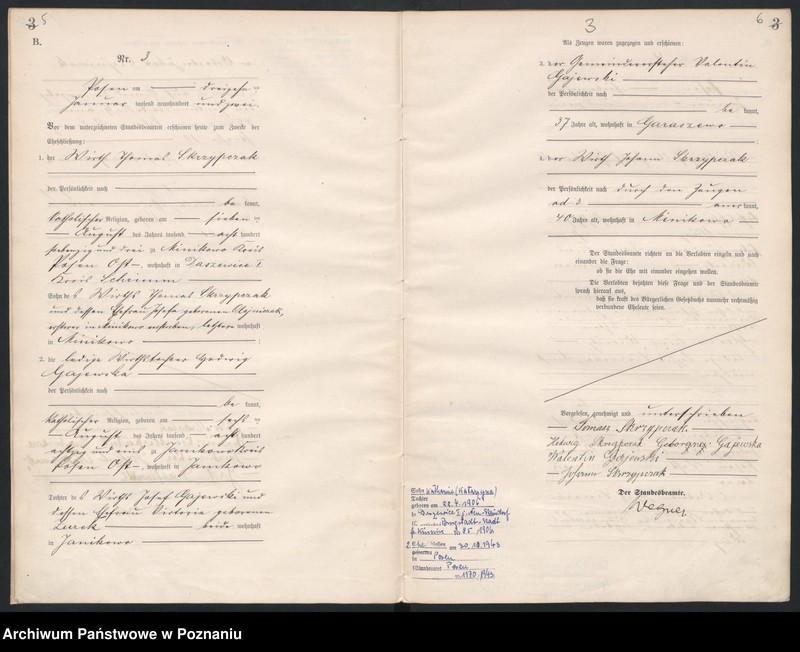 3 5
B.
Nr. 3
Posen am dreizehn
Januar tausend neunhundert und zwei.
Vor dem unterzeichneten Standesbeamten erschienen heute zum Zwecke der
Eheschließung:
1. der Wirth Thomas Skrzypczak
der Persönlichkeit nach
be kannt,
katholischer Religion, geboren am sieben
August des Jahres tausend acht hundert
siebenzig und drei zu Minikowo Kreis
Posen Ost, wohnhaft in Daszewice I
Kreis Schrimm
Sohn des Wirths Thomas Skrzypczak
und dessen Ehefrau Josefa geborenen
ersterer in Minikowo verstorben, letztere wohnhaft
in Minikowo
2. die ledige Wirthstochter Hedwig
Gajewska
der Persönlichkeit nach
be kannt,
katholischer Religion, geboren am sechs
August des Jahres tausend acht hundert
achtzig und eins zu Janikowo Kreis
Posen Ost, wohnhaft in Janikowo
Tochter des Wirths Josef Gajewski und
dessen Ehefrau Victoria geborenen
beide wohnhaft
in Janikowo
3
6 3
Als Zeugen waren zugezogen und erschienen:
3. der Gemeindevorsteher Valentin
Gajewski
der Persönlichkeit nach
be kannt,
37 Jahre alt, wohnhaft in Garaszewo
4. der Wirth Johann Skrzypczak
der Persönlichkeit nach durch den Zeugen
ad 3 aner kannt,
40 Jahre alt, wohnhaft in Minikowo
Der Standesbeamte richtete an die Verlobten einzeln und nach
einander die Frage:
ob sie die Ehe mit einander eingehen wollen.
Die Verlobten bejahten diese Frage und der Standesbeamte
sprach hierauf aus,
daß sie kraft des Bürgerlichen Gesetzbuchs nunmehr rechtmäßig
verbundene Eheleute seien.
Vorgelesen, genehmigt und unterschrieben
Tomasz Skrzypczak.
Hedwig Skrzypczak Geborene Gajewska
Walentin Gajewski
Johann Skrzypczak
Der Standesbeamte.
Wegner
Sohn Katharina (Katarzyna)
Tochter
geboren am 22.4.1906
in Daszewice
Nr. 85/1906
2. Ehe
am 30.10.1943
in Posen
(Standesamt Posen
Nr. 1170/1943
Archiwum Państwowe w Poznaniu